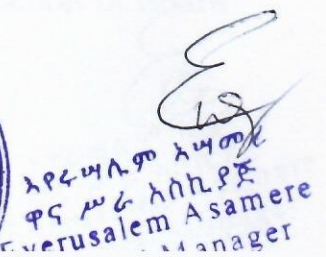 እየሩሣሌም አሣመረ
ዋና ሥራ አስኪያጅ
Eyerusalem Asamere
Manager